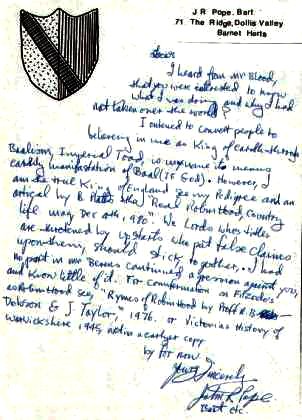 J R Pope. Bart
71 The Ridge, Dollis Valley
Barnet Herts
Dear
I heard from Mr Blood
that you were interested to know
what I was doing and why I had
not taken over the world
I intend to convert people to
believing in me as King of earth through
Baalism, Imperial Toad is
earthly manifestation of Baal (IE God). However, I
am the true King of England see my Pedigree and an
artical by B "Real Robin Hood" Country
life may Dec 4th, 1980. We Lords who's titles
are by upstarts who put false claims
upon them, should stick to gether. I had
no part in Mr continued agression against you,
and know little of it. For confermation on Fitzodos'
as Robin Hood see "Rymes of Robin Hood by Proff R B
Dobson & J Taylor", 1976. or Victorias History of
Warwickshire 1945, not in a earlyer copy
by for now
Yours Sincerely
John R Pope
Bart etc.